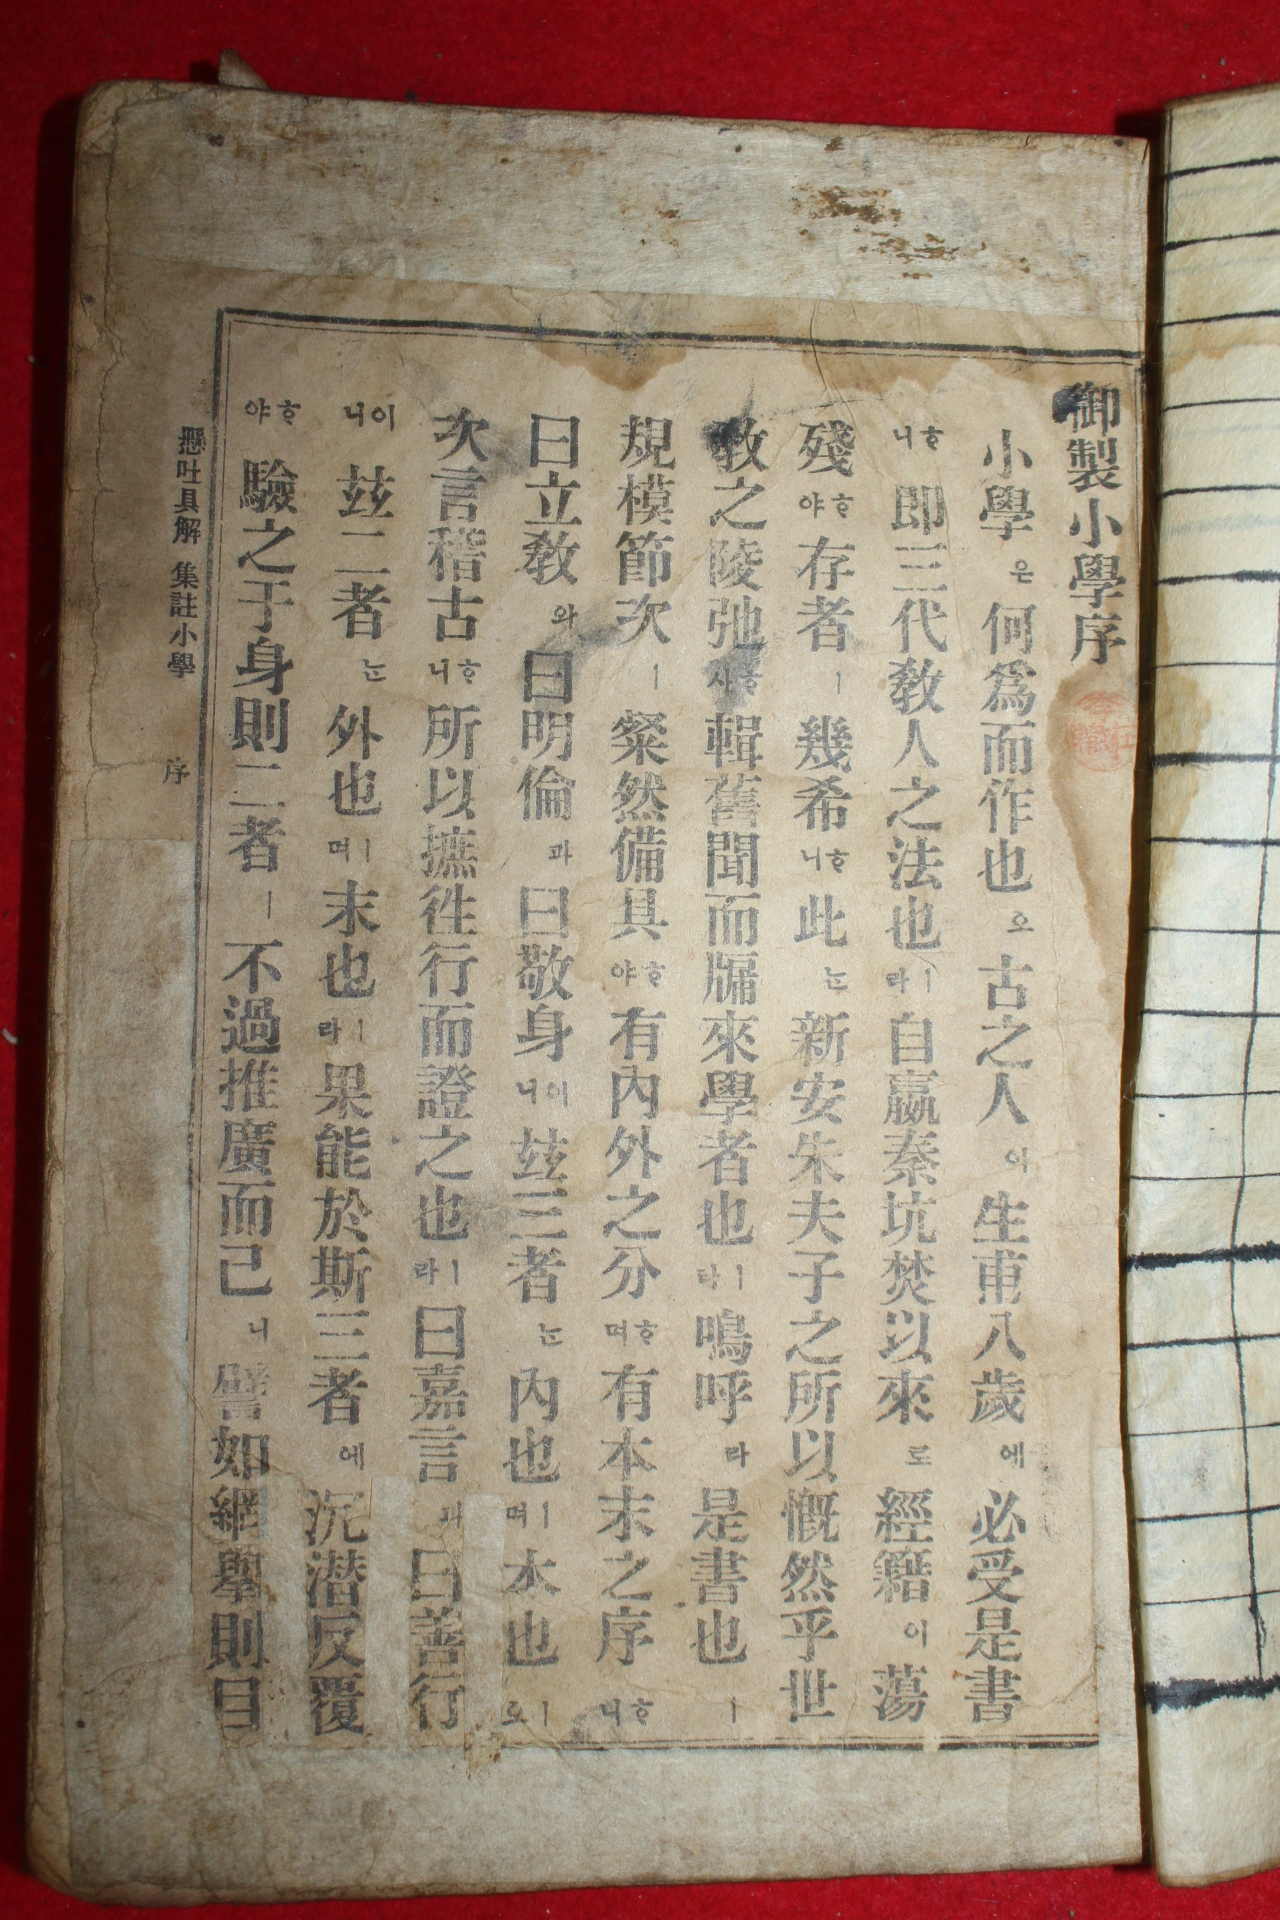 御製小學序
小學은何爲而作也오古之人이生甫八歲에必受是書
ᄒᆞ니卽三代敎人之法也ㅣ라自嬴秦坑焚以來로經籍이蕩
殘ᄒᆞ야存者ㅣ幾希ᄒᆞ니此ᄂᆞᆫ新安朱夫子之所以慨然乎世
敎之陵弛ᄒᆞ사輯舊聞而牖來學者也ㅣ라嗚呼라是書也ㅣ
規模節次ㅣ粲然備具ᄒᆞ야有內外之分ᄒᆞ며有本末之序ᄒᆞ니
曰立敎와曰明倫과曰敬身이니玆三者ᄂᆞᆫ內也ㅣ며本也ㅣ오
次言稽古ᄒᆞ니所以摭徃行而證之也ㅣ라曰嘉言과曰善行
이니玆二者ᄂᆞᆫ外也ㅣ며末也ㅣ라果能於斯三者에沉潛反覆
ᄒᆞ야驗之于身則二者ㅣ不過推廣而已니譬如網擧則目
懸吐具解 集註小學 序